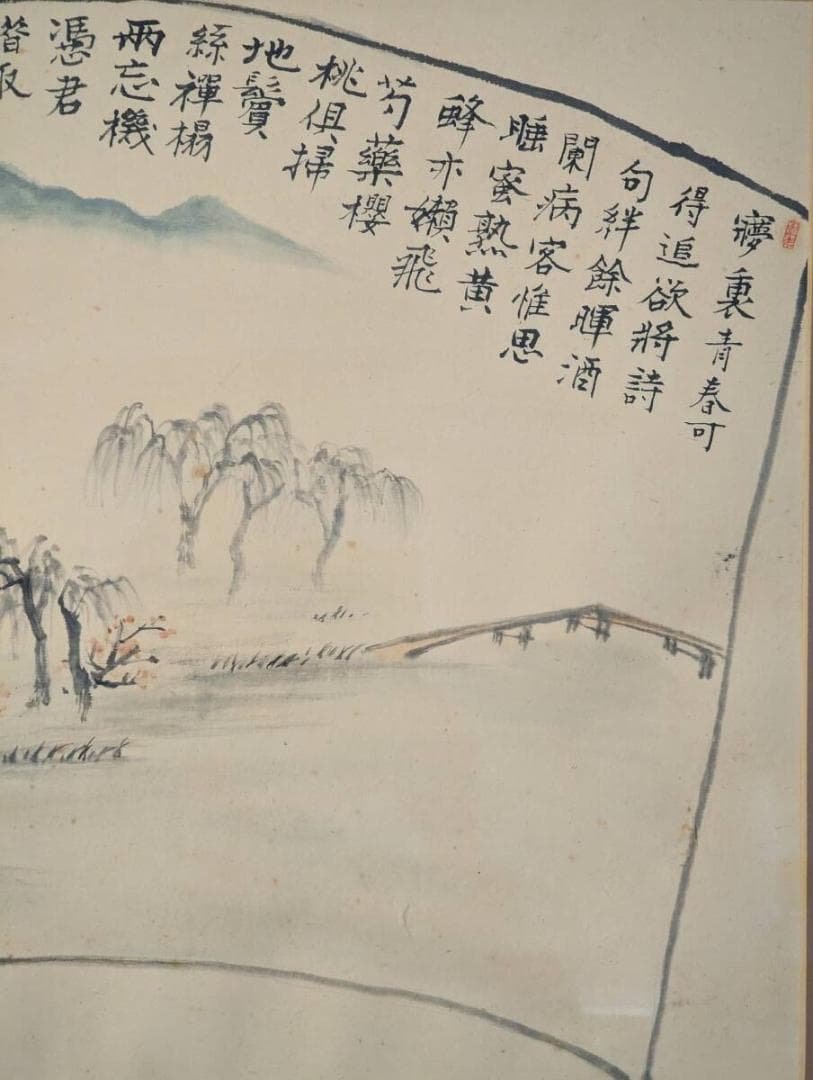 夢裏青春可
得追欲將詩
句絆餘暉酒
闌病客惟思
睡蜜熟黄
蜂亦嬾飛
芍藥櫻
桃俱掃
地鬢
絲禪榻
兩忘機
憑君